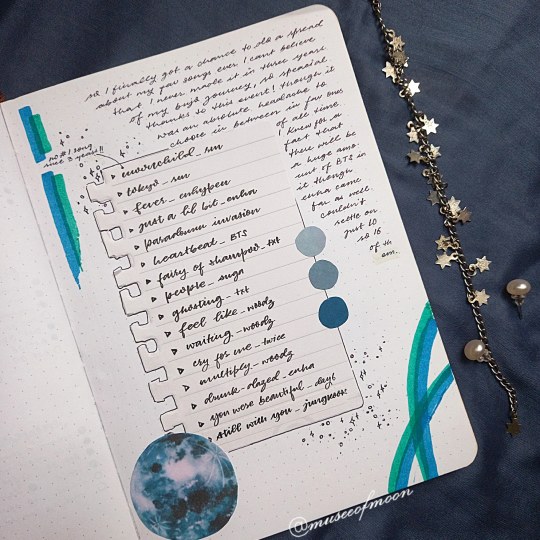 so I finally got a chance to do a spread
about my fav songs ever I cant believe
that I never made it in three years
of my bujo journey, so special
thanks to this event! though it
was an absolute headache to
choose in between in fav ones
of all time
I knew for a
fact that
there will be
a huge amo
unt of BTS in
it though
enha came
far as well
couldn't
settle on
just 10
so 16
of th
em.
no #1 song
since 3 years!!
moonchild_rm
tokyo_rm
fever_enhypen
just a lil bit_enha
paradoxxx invasion
heartbeat_BTS
fairy of shampoo_txt
people_suga
ghosting_txt
feel like_woodz
waiting_woodz
cry for me_twice
multiply_woodz
drunk-dazed_enha
you were beautiful_day6
still with you_jungkook
@museeofmoon